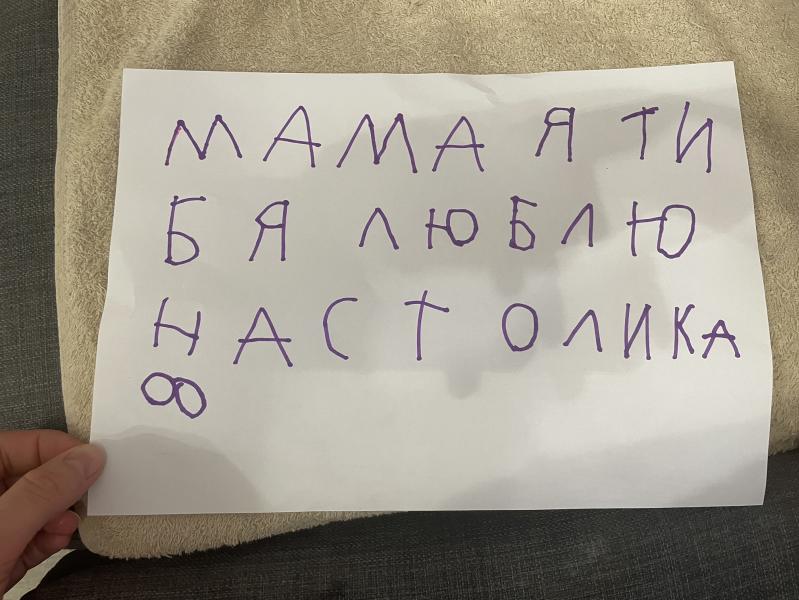 МАМА Я ТИ
БЯ ЛЮБЛЮ
НАСТОЛИКА
∞